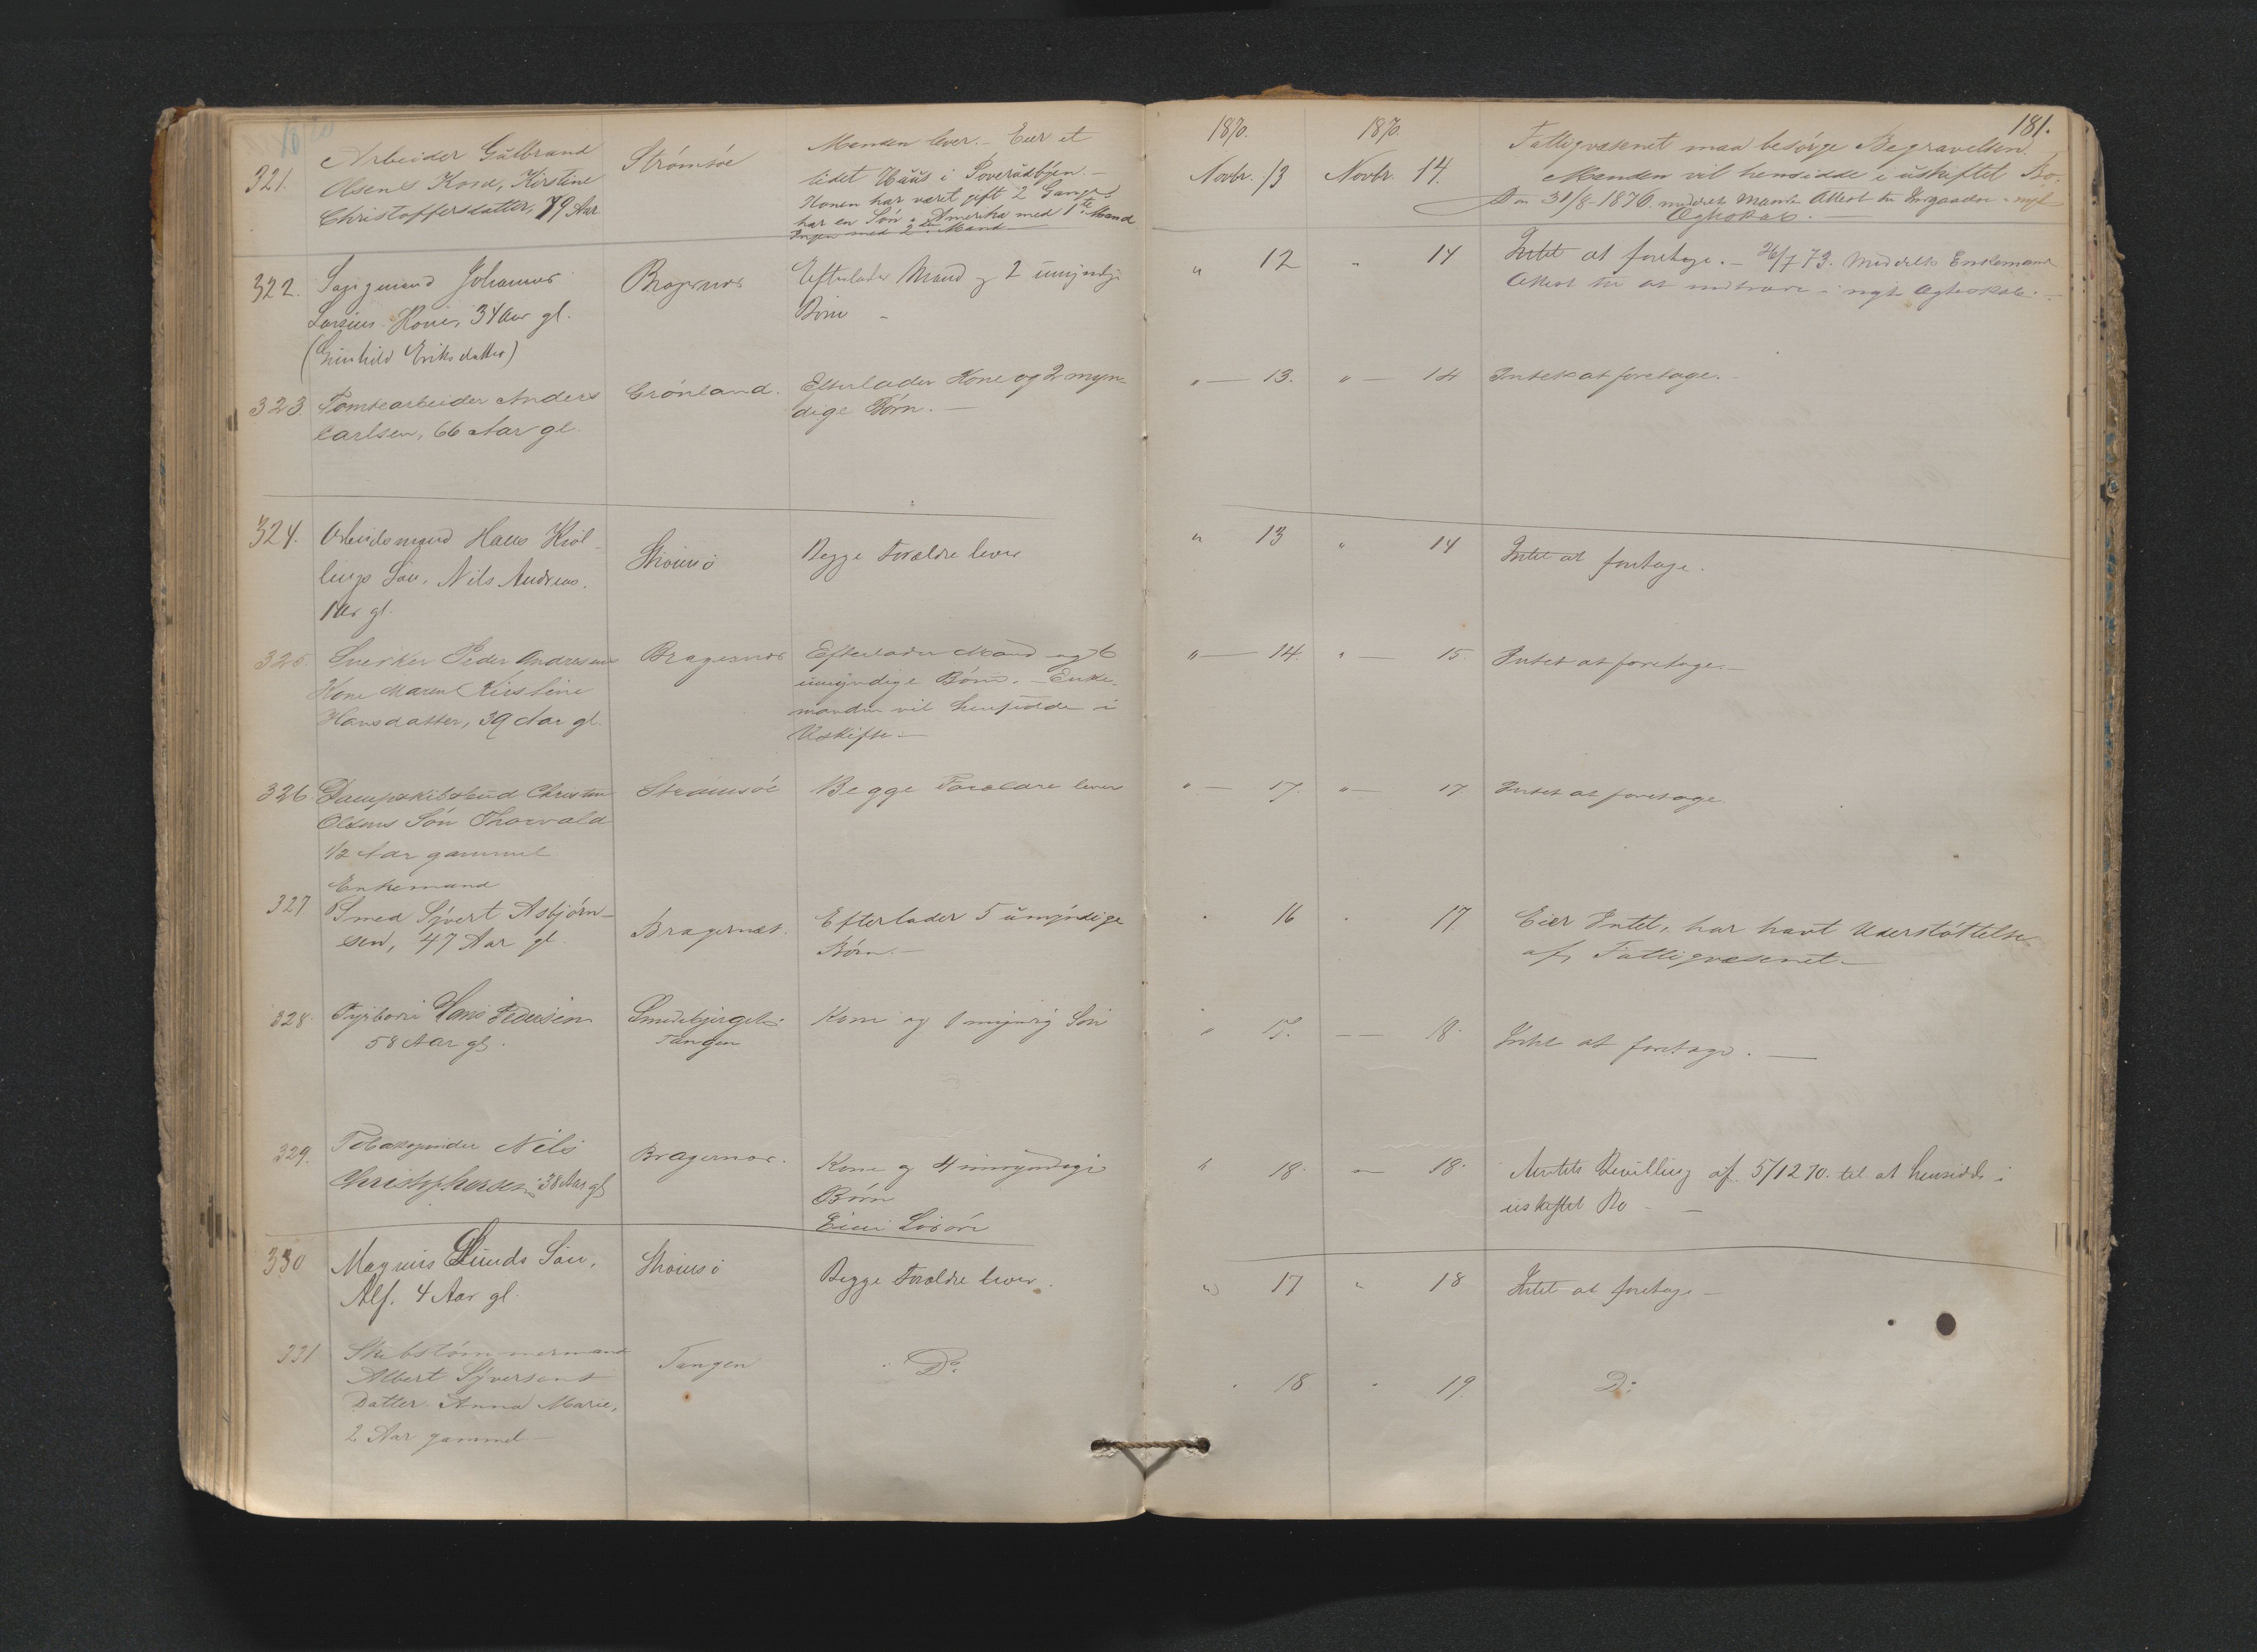 181.
1870.
1870.
321.
Arbeider Gulbrand
Olsens Kone, Kirstine
Christoffersdatter, 79 Aar
Strömsöe
Manden lever. - Eier et
lidet Huus i Poverudbyen. -
Konen har været gift 2 Gange
har en Sön i Amerika med 1ste Mand
Ingen med 2den Mand
Novbr. 13
Novbr. 14.
Fattigvæsenet maa besörge Begravelsen.
Manden vil hensidde i uskiftet Bo.
Den 31/8-1876 meddelt Manden Attest til Indgaaelse i nyt
Ægteskab. -
322.
Johannes
Larsens Kone, 34 Aar gl.
(Gunhild Eriksdatter)
Bragernes
Efterlader Mand og 2 umyndige
Börn -
" 12
" 14
Intet at foretage. - 26/7 73. Meddelt Enkemand
Attest til at indtræde i nyt Ægteskab. -
323.
Tomtearbeider Anders
Carlsen, 66 Aar gl.
Grönland.
Efterlader Kone og 2 myn-
dige Börn. -
" - 13.
" - 14
Intet at foretage.
324.
Arbeidsmand Hans Kiöl-
lings Sön, Nils Andreas.
1 Aar gl.
Strömsö
Begge Forældre lever
" 13
" 14
Intet at foretage.
325.
Snerker Peder Andresens
Kone Maren Kirstine
Hansdatter, 39 Aar gl.
Bragernæs
Efterlader Mand og 6
umyndige Börn. - Enke-
manden vil hensidde i
Uskifte -
" - 14.
" - 15.
Intet at foretage. -
326.
Dampskibsbud Christen
Olsens Sön Thorvald
1/2 Aar gammel
Strömsöe
Begge Forældre lever
" - 17.
" - 17
Intet at foretage.
327
Enkemand
Smed Syvert Asbjörn-
sen, 47 Aar gl.
Bragernæs.
Efterlader 5 umyndige
Börn. -
" 16
" 17
Eier Intet, har havt Understöttelse
af Fattigvæsenet. -
328.
Fyrböder Hans Pedersen
58 Aar gl.
Smedebjerget
Tangen
Kone og 1 myndig Sön
" 17.
- 18.
Intet at foretage. -
329.
Tobakspinder Nils
Christophersen 38 Aar gl
Bragernæs.
Kone og 4 umyndige
Börn
Eier Lösöre
" 18.
- 18.
Amtets Bevilling af 5/12 70. til at hensidde i
uskiftet Bo -
330
Magnus Lunds Sön,
Alf. 4 Aar gl.
Strömsö
Begge Forældre lever.
" 17
" 18
Intet at foretage -
331
Skibstömmermand
Albert Syversens
Datter Anna Marie,
2 Aar gammel -
Tangen
Do.
" 18
" 19.
Do.